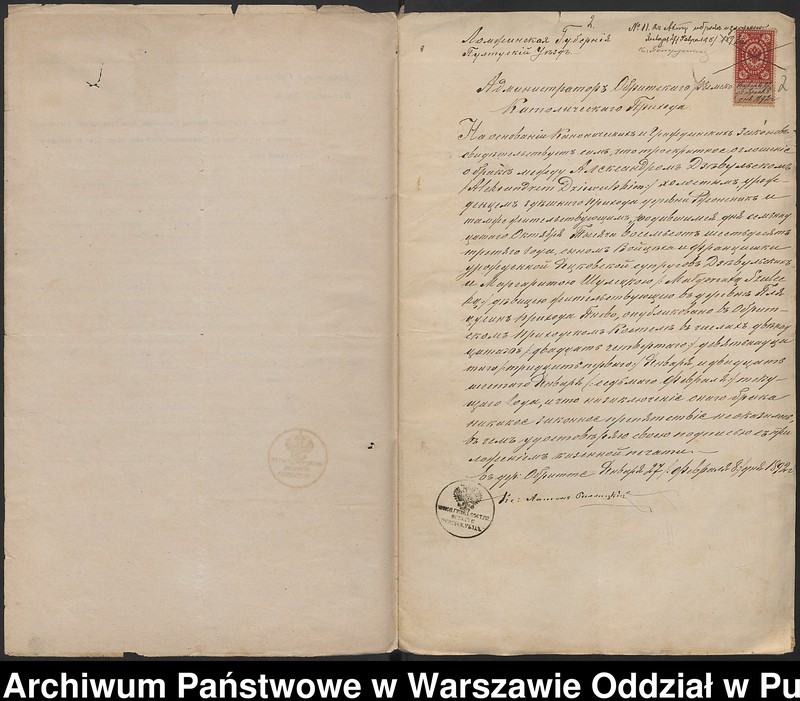 2.
Ломжинская Губернія
Пултускій Уѣздъ
№ 11. къ Акту о бракѣ
2
Администраторъ Обритскаго Римско
Католическаго Прихода
На основаніи Каноническихъ и Гражданскихъ Законовъ
свидѣтельствуетъ симъ, что троекратное оглашеніе
о бракѣ между Александромъ Дзѣвульскимъ
/Aleksandrem Dziewulskim/ холостымъ, урож-
денцемъ здѣшняго прихода деревни и
тамже жительствующимъ, родившимся дня семнад
цатаго Октября Тысяча восемьсотъ шестьдесятъ
третяго года, сыномъ Войцѣха и Францишки
урожденной супруговъ Дзѣвульскихъ
и Маргаритою Шулецкою / Małgorzatą Szulec
ką / дѣвицею жительствующею въ деревнѣ
прихода Пниво, опубликовано въ Обрит-
скомъ приходскомъ Костелѣ въ числахъ двѣнад
цатаго / двадцать четвертаго / девятнадца
таго / тридцать перваго / Января и двадцать
шестаго Января / седьмаго Февраля / теку
щаго года, и что на заключеніе сего брака
никакое законное препятствіе не оказалось,
въ чемъ удостовѣряю своею подписью съ при
ложеніемъ казенной печати.
Въ дер. Обритте Января 27 / Февраля 8 / дня 1892 г.
Кс: Антонъ
Archiwum Państwowe w Warszawie Oddział w Pu